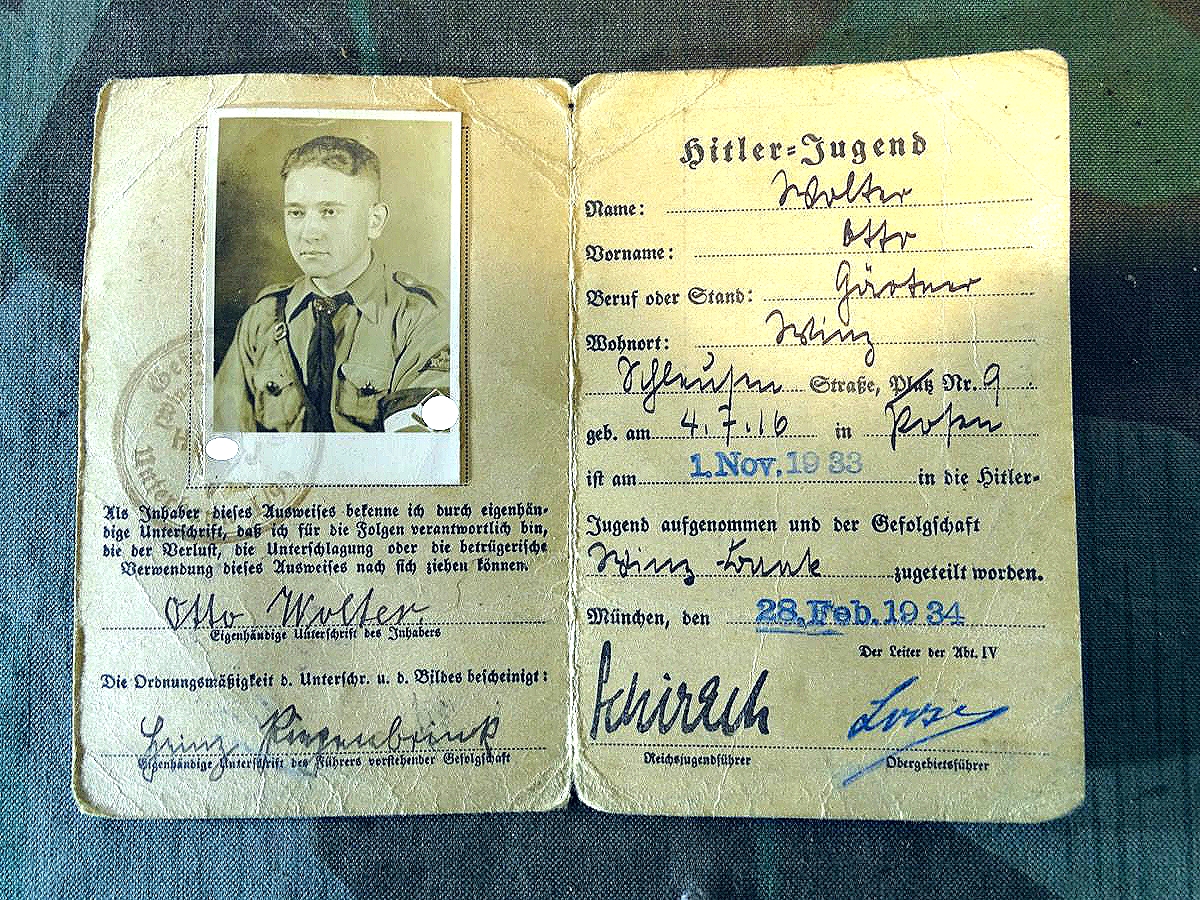 Als Inhaber dieses Ausweises bekenne ich durch eigenhän-
dige Unterschrift, daß ich für die Folgen verantwortlich bin,
die der Verlust, die Unterschlagung oder die betrügerische
Verwendung dieses Ausweises nach sich ziehen können.
Otto Wolter.
Eigenhändige Unterschrift des Inhabers
Die Ordnungsmäßigkeit d. Unterschr. u. d. Bildes bescheinigt:
Heinz
Eigenhändige Unterschrift des Führers vorstehender Gefolgschaft
Hitler-Jugend
Name: Wolter
Vorname: Otto
Beruf oder Stand: Gärtner
Wohnort: Winz
Schleusen Straße, Platz Nr. 9
geb. am 4.7.16 in Posen
ist am 1. Nov. 1933 in die Hitler-
Jugend aufgenommen und der Gefolgschaft
Winz zugeteilt worden.
München, den 28. Feb. 1934
Der Leiter der Abt. IV
Schirach
Reichsjugendführer
Obergebietsführer